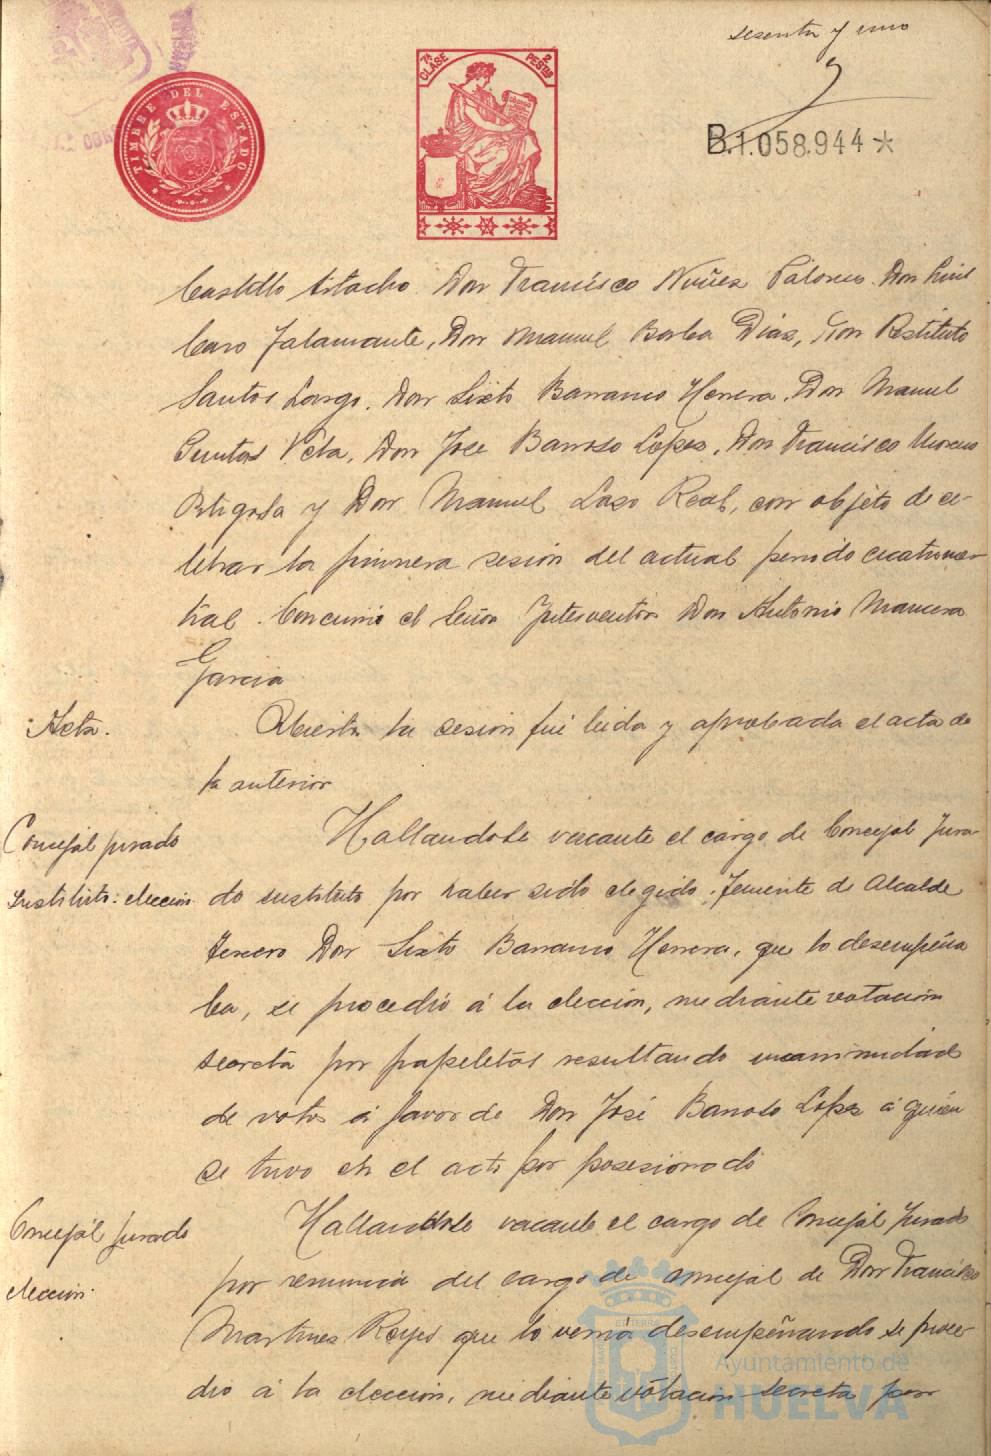 sesenta y uno
TIMBRE DEL ESTADO
7ª CLASE
2 PESETAS
B.1.058.944*
Castillo Don Francisco Nuñez Don Luis
Caro Jalamante, Don Manuel Borba Diaz, Don Restituto
Santos Largo, Don Sixto Barranco Herrera, Don Manuel
Don Jose Barroso Lopez, Don Francisco Moreno
Ortigosa y Don Manuel Lazo Real, con objeto de ce-
lebrar la primera sesión del actual periodo cuatrimes-
tral. Concurrió el Señor Interventor Don Antonio Mancera
Garcia
Acta.
Abierta la sesion fué leida y aprobada el acta de
la anterior
Concejal jurado
Sustituto: elección
Hallandose vacante el cargo de Concejal Jura-
do sustituto por haber sido elegido Teniente de Alcalde
tercero Don Sixto Barranco Herrera, que lo desempeña
ba, se procedió á la elección, mediante votación
secreta por papeletas resultando unanimidad
de votos á favor de Don José Barroso Lopez á quién
se tuvo en el acto por posesionado
Concejal jurado
elección.
Hallandose vacante el cargo de Concejal Jurado
por renuncia del cargo de concejal de Don Francisco
Martinez Reyes que lo venía desempeñando se proce-
dio á la elección, mediante votacion secreta por
Ayuntamiento de
HUELVA